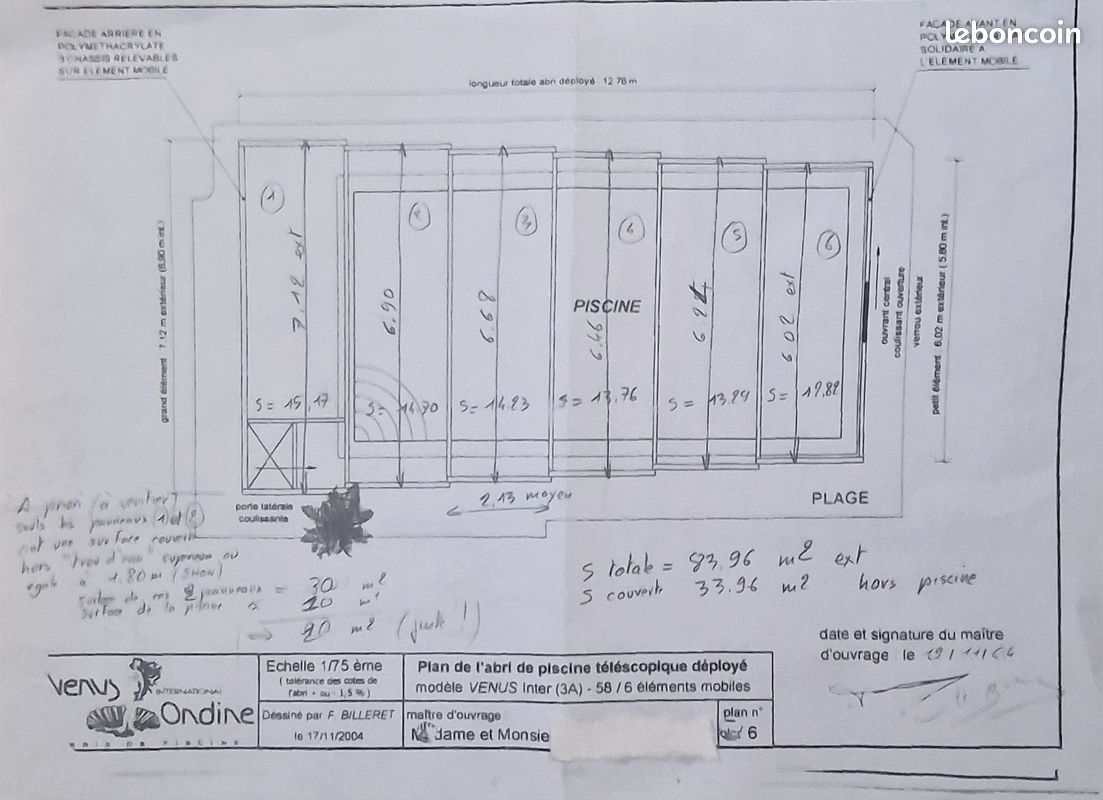 FACADE ARRIERE EN
POLYMETHACRYLATE
3 CHASSIS RELEVABLES
SUR ELEMENT MOBILE
FACADE AVANT EN
POLY
SOLIDAIRE A
L'ELEMENT MOBILE
leboncoin
longueur totale abri déployé 12.78 m
grand élément : 7.12 m extérieur (6.90 m int.)
1
2
3
4
5
6
7.12 ext
6.90
6.68
6.46
6.24
6.02 ext
PISCINE
S = 15,17
S = 14.70
S = 14.23
S = 13,76
S = 13,29
S = 12,82
ouvrant central
coulissant ouverture
verrou extérieur
petit élément : 6.02 m extérieur (5.80 m int.)
porte latérale
coulissante
2.13 moyen
PLAGE
A priori (à vérifier)
seuls les panneaux (1) et (2)
ont une surface couverte
hors "trou d'eau" supérieure ou
égale à 1.80 m (SHON)
surface de ces 2 panneaux = 30 m2
surface de la piscine = 20 m2
=> 20 m2 (juste !)
S totale = 83.96 m2 ext
S couverte 33.96 m2 hors piscine
date et signature du maître
d'ouvrage le 19/11/04
Venus
INTERNATIONAL
Ondine
Echelle 1/75 ème
( tolérance des cotes de
l'abri + ou - 1,5 % )
Plan de l'abri de piscine téléscopique déployé
modèle VENUS Inter (3A) - 58 / 6 éléments mobiles
Déssiné par F. BILLERET
le 17/11/2004
maître d'ouvrage
Madame et Monsie
plan n°
6